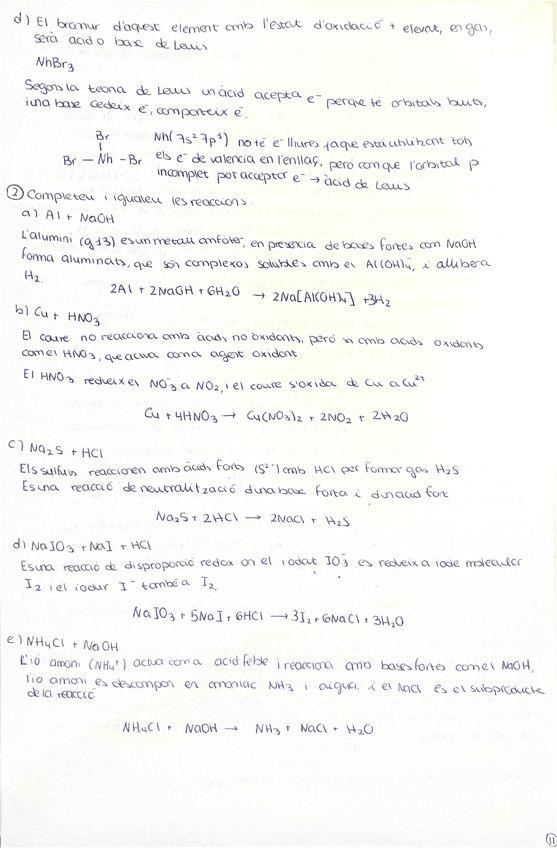 d) El bromur d'aquest element amb l'estat d'oxidació + elevat, en gas,
serà acid o base de Lewis
NhBr₃
Segons la teoria de Lewis un àcid accepta e⁻ perque té orbitals buits,
i una base cedeix e⁻, comparteix e⁻.
Br
Br — Nh - Br
Nh (7s² 7p¹) no té e⁻ lliures ja que està utilitzant tots
els e⁻ de valencia en l'enllaç, però com que l'orbital p
incomplet pot acceptar e⁻ → àcid de Lewis
② Completeu i igualeu les reaccions.
a) Al + NaOH
L'alumini (g.13) es un metall amfòter, en presencia de bases fortes com NaOH
forma aluminats, que són complexos solubles amb el Al(OH)₄⁻, i allibera
H₂.
2Al + 2NaOH + 6H₂O → 2Na[Al(OH)₄] + 3H₂
b) Cu + HNO₃
El coure no reacciona amb àcids no oxidants, però si amb acids oxidants
com el HNO₃, que actua com a agent oxidant.
El HNO₃ redueix el NO₃⁻ a NO₂, i el coure s'oxida de Cu a Cu²⁺
Cu + 4HNO₃ → Cu(NO₃)₂ + 2NO₂ + 2H₂O
c) Na₂S + HCl
Els sulfurs reaccionen amb àcids forts (S²⁻) amb HCl per formar gas H₂S
Es una reacció de neutralització d'una base forta i d'un acid fort
Na₂S + 2HCl → 2NaCl + H₂S
d) NaIO₃ + NaI + HCl
Es una reacció de disproporció redox on el iodat IO₃⁻ es redueix a iode molecular
I₂ i el iodur I⁻ també a I₂.
NaIO₃ + 5NaI + 6HCl → 3I₂ + 6NaCl + 3H₂O
e) NH₄Cl + NaOH
L'ió amoni (NH₄⁺) actua com a acid feble i reacciona amb bases fortes com el NaOH,
l'io amoni es descompon en amoniac NH₃ i aigua, i el NaCl es el subproducte
de la reacció
NH₄Cl + NaOH → NH₃ + NaCl + H₂O
11